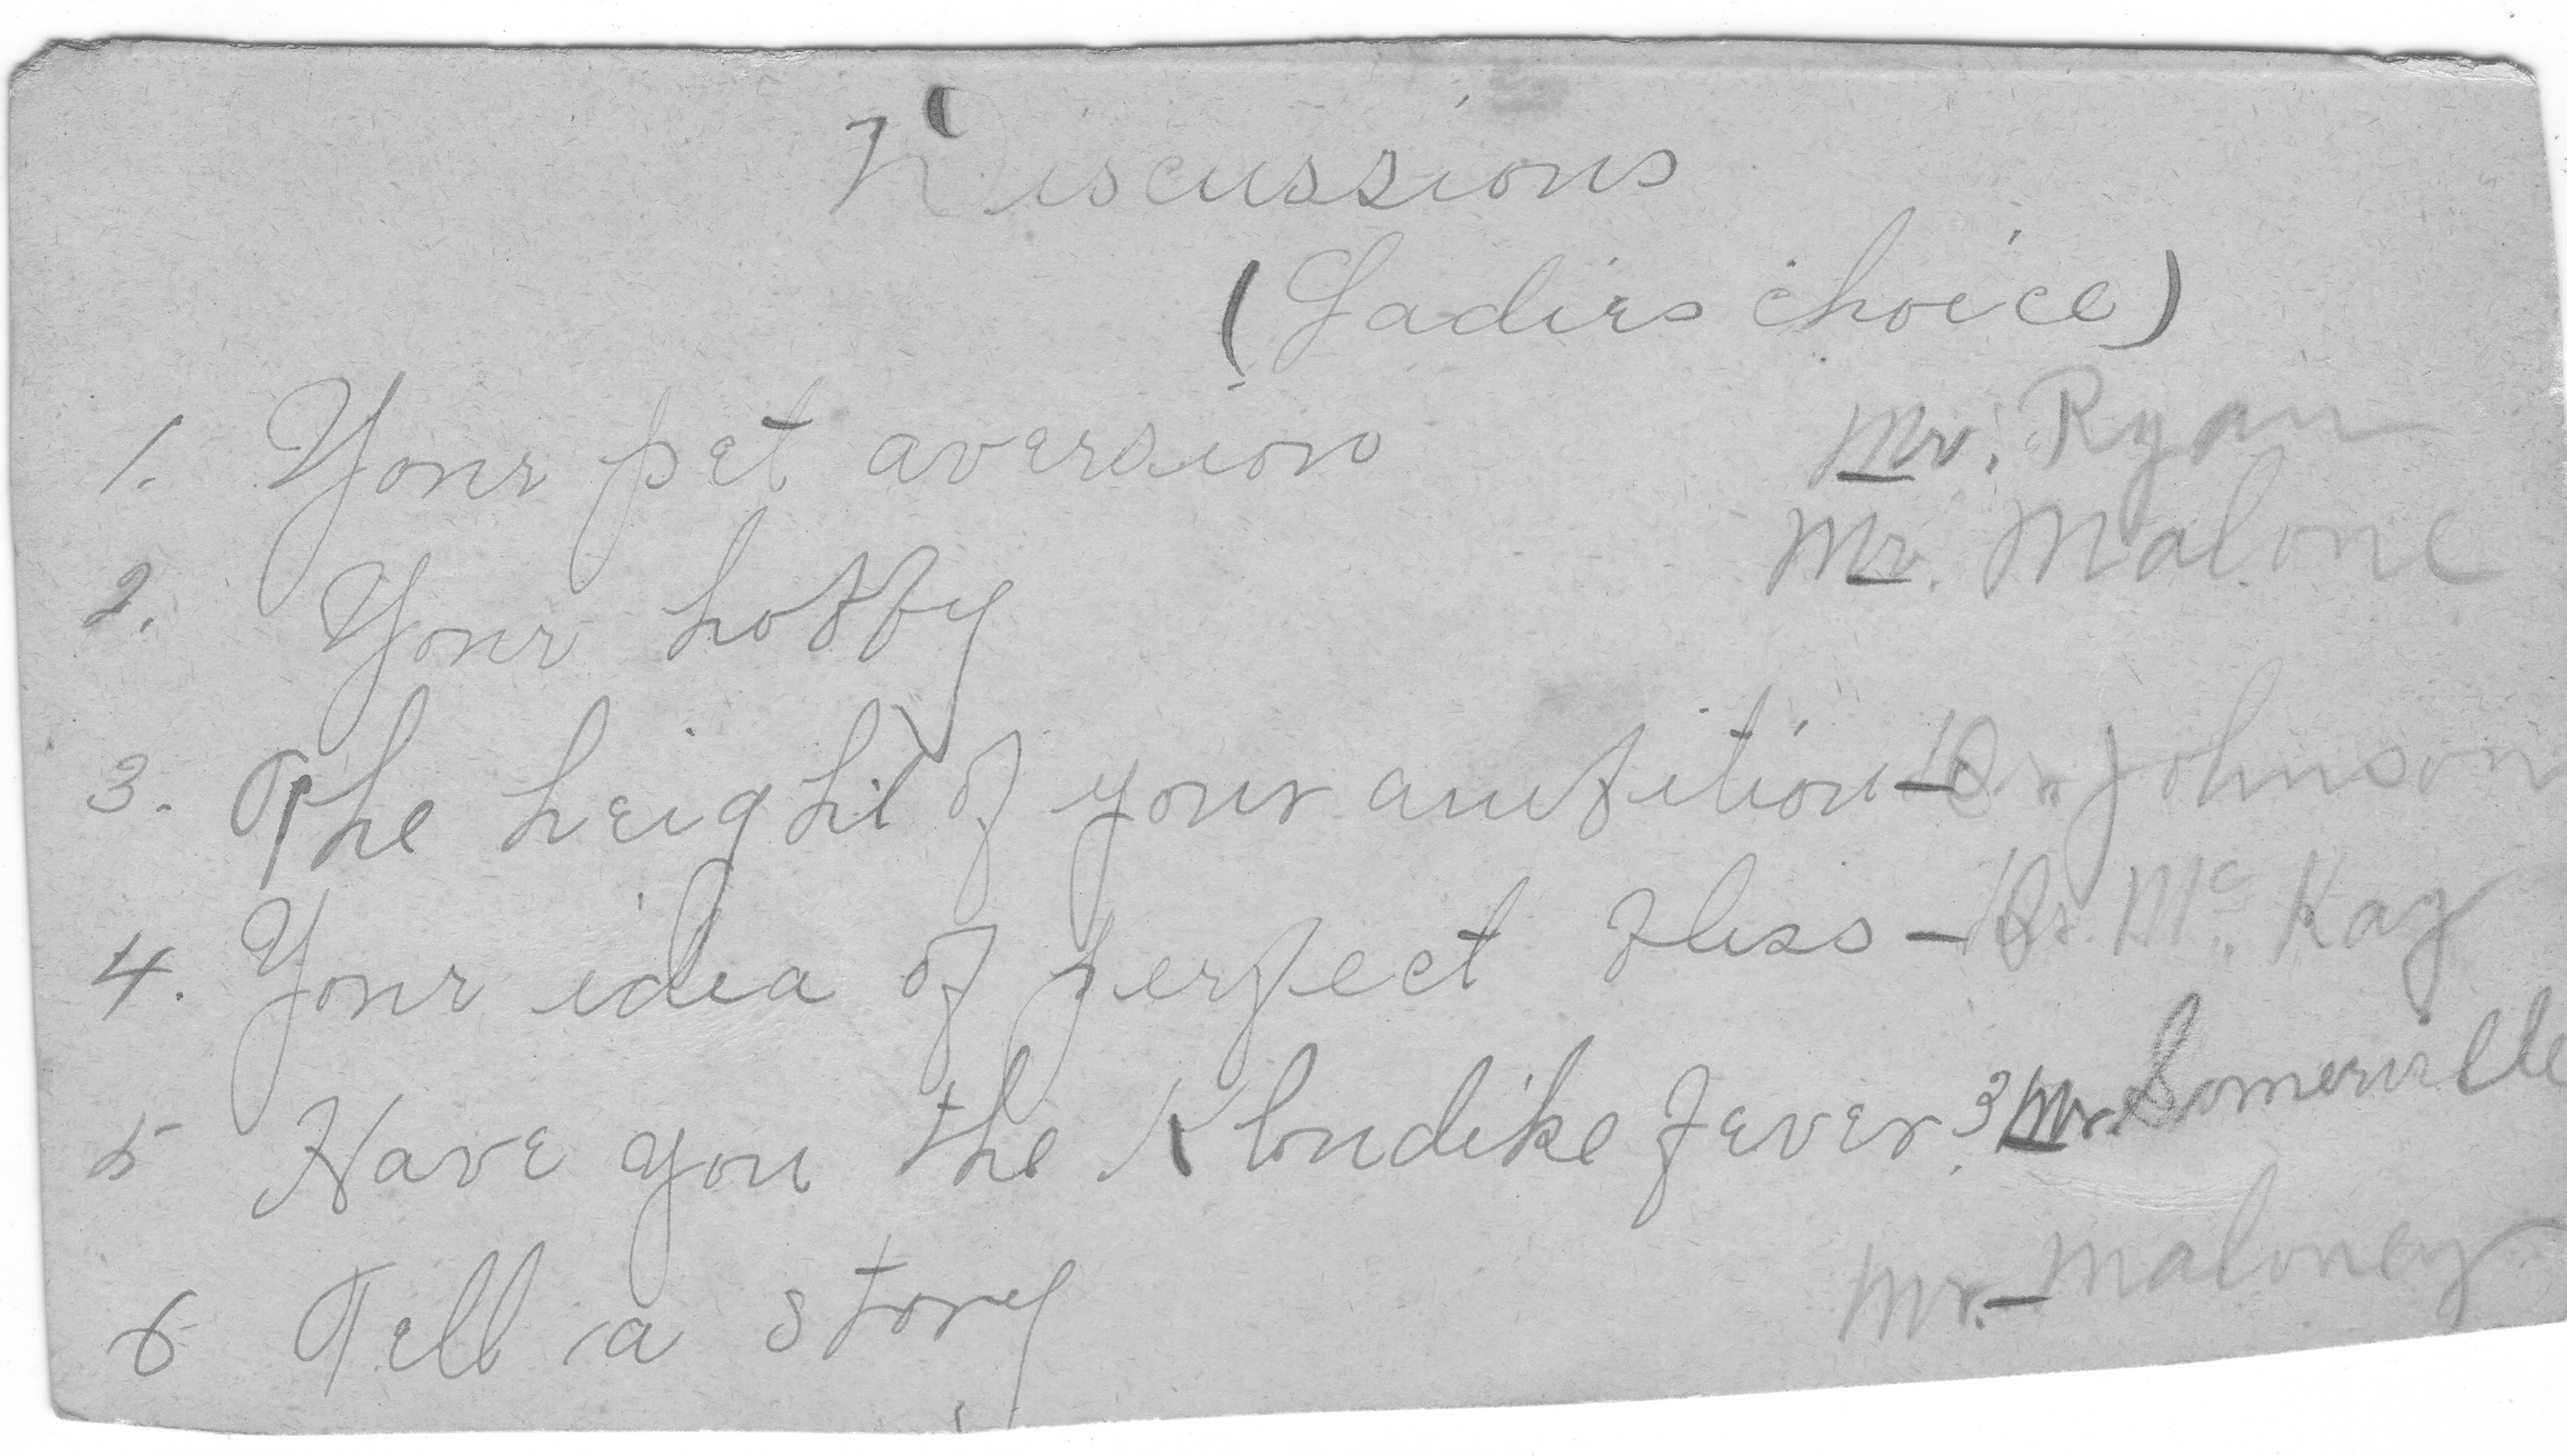 Discussions
(Ladies choice)
1. Your pet aversion Mr. Ryan
2. Your hobby Mr. Malone
3. The height of your ambition - Dr. Johnson
4. Your idea of perfect bliss - Dr. McKay
5 Have you the Klondike fever? Mr. Somerville
6 Tell a story Mr. Maloney